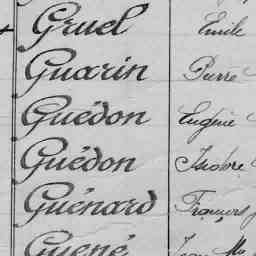 Gruel Emile
Guarin Pierre
Guédon Eugène
Guédon Isidore
Guénard François
Guené Jean